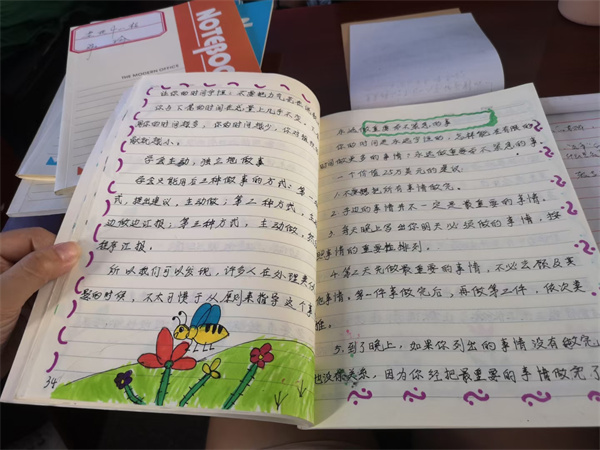 NOTEPOO
THE MODERN OFFICE
你为不急的时间在这里上几乎不变,
响你的时间越多,你的时间越少,你对极
献就越小。
学会主动,独立地做事
学会只能用后三种做事的方式:第一
式,提出建议,主动做;第二种方式,主
边做边汇报;第三种方式,主动做,
程序汇报。
所以我们可以发现,许多人在处理类似
题的时候,不太习惯于从原则来指导这个事
34
永远做重要而不紧急的事
你的时间是永远守恒的,怎样能在有限的
时间做更多的事情:永远做重要而不紧急的事。
一个价值25万美元的建议:
1.不要想把所有事情做完。
2.手边的事情并不一定是最重要的事情。
3.每天晚上写出你明天必须做的事情,按
照事情的重要性排列。
4.第二天先做最重要的事情,不必去顾及其
他事情,第一件事做完后,再做第二件,依次类
推。
5.到了晚上,如果你列出的事情没有做完
也没关系,因为你已经把最重要的事情做完了